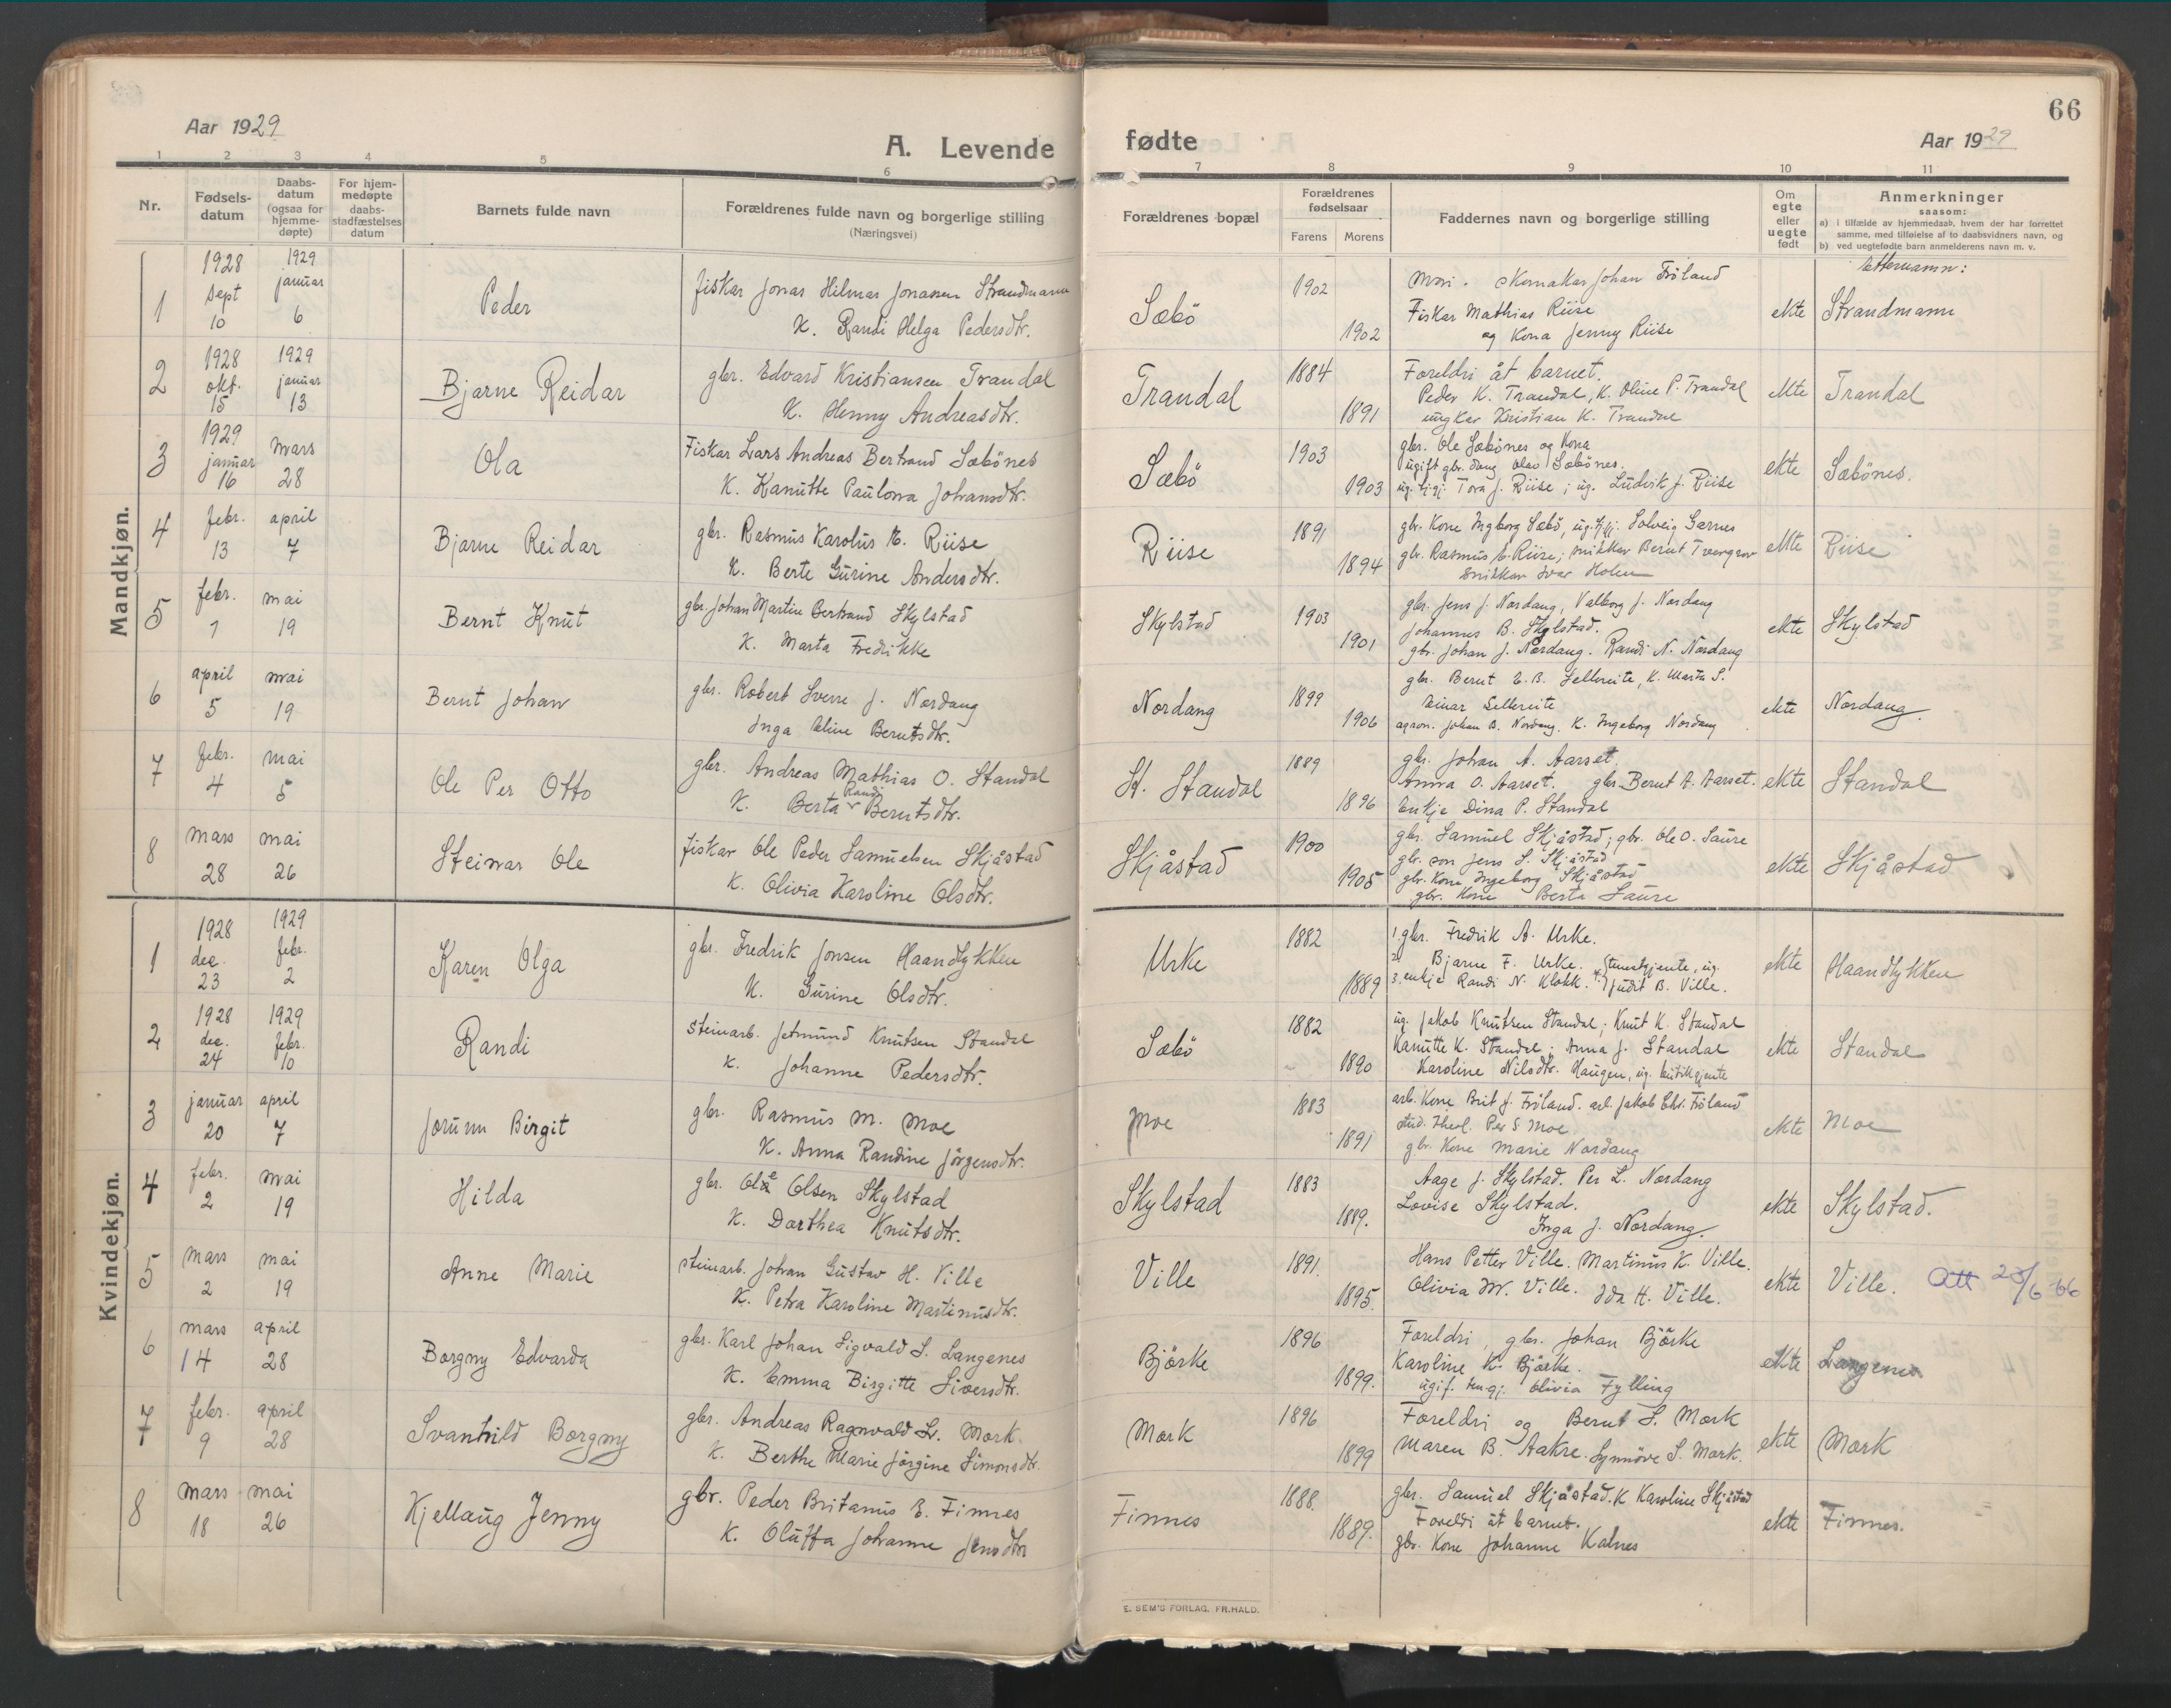 66
Aar 1929
A. Levende
fødte
Aar 1929
1 2 3 4 5 6 7 8 9 10 11
Nr.
Fødsels-
datum
Daabs-
datum
(ogsaa for
hjemme-
døpte)
For hjem-
medøpte
daabs-
stadfæstelses
datum
Barnets fulde navn
Forældrenes fulde navn og borgerlige stilling
(Næringsvei)
Forældrenes bopæl
Forældrenes
fødselsaar
Farens Morens
Faddernes navn og borgerlige stilling
Om
egte
eller
uegte
født
Anmerkninger
saasom:
a) i tilfælde av hjemmedaab, hvem der har forrettet
samme, med tilføielse av to daabsvidners navn, og
b) ved uegtefødte barn anmelderens navn m. v.
Mandkjøn.
Etternamn:
1 1928 sept 10 1929 januar 6 Peder
fiskar Jonas Hilmar Jonassen Strandmann
K. Randi Helga Pedersdtr.
Sæbö 1902 1902
Mori. skomakar Johan Tröland
Fiskar Mathias Riise
og Kona Jenny Riise
ekte Strandmann
2 1928 okt. 15 1929 januar 13 Bjarne Reidar
gbr. Edvard Kristiansen Trandal
K. Henny Andreasdtr.
Trandal 1884 1891
Foreldri åt barnet.
Peder K. Trandal, K. Oline P. Trandal
ungkar Kristian K. Trandal
ekte Trandal
3 1929 januar 16 mars 28 Ola
Fiskar Lars Andreas Bertrand Sæbönes
K. Kanutte Paulona Johansdtr.
Sæbö 1903 1903
gbr. Ole Sæbönes og Kona
ugift gbr. Olav Sæbönes.
Tora J. Riise; ug. Ludvik J. Riise
ekte Sæbönes.
4 febr. 13 april 7 Bjarne Reidar
gbr. Rasmus Karolus E. Riise
K. Berte Gurine Andersdtr.
Riise 1891 1894
gbr. Kone Ingborg Sæbö, Solveig Garnes
gbr. Rasmus E. Riise; snikkar Bernt Tverrgrov
snikkar Ivar Holen
ekte Riise
5 febr. 7 mai 19 Bernt Knut
gbr. Johan Martin Bertrand Skylstad
K. Marta Fredrikke
Skylstad 1903 1901
gbr. Jens J. Nordang, Valborg J. Nordang
Johannes B. Skylstad.
gbr. Johan J. Nordang. Randi N. Nordang
ekte Skylstad
6 april 5 mai 19 Bernt Johan
gbr. Robert Sverre J. Nordang
Inga Eline Berntsdtr.
Nordang 1899 1906
gbr. Bernt E. B. Sellereite, K. Marta S.
Einar Sellereite
agron. Johan B. Nordang. K. Ingeborg Nordang
ekte Nordang.
7 febr. 4 mai 5 Ole Per Otto
gbr. Andreas Mathias O. Standal
K. Berta Randi Berntsdtr.
St. Standal 1889 1896
gbr. Johan A. Aarset.
Anna O. Aarset. gbr. Bernt A. Aarset.
Enkje Dina P. Standal
ekte Standal
8 mars 28 mai 26 Steinar Ole
fiskar Ole Peder Samuelsen Skjåstad
K. Olivia Karoline Olsdtr.
Skjåstad 1900 1905
gbr. Samuel Skjåstad; gbr. Ole O. Saure
gbr. son Jens S. Skjåstad
gbr. Kone Ingeborg Skjåstad
gbr. Kone Berta Saure
ekte Skjåstad
Kvindekjøn.
1 1928 dec. 23 1929 febr. 2 Karen Olga
gbr. Fredrik Jonsen Haandlykken
K. Gurine Olsdtr.
Urke 1882 1889
1. gbr. Fredrik A. Urke.
2. Bjarne F. Urke. tenestgjente, ug.
3. enkje Randi N. Klokk. 4. Judit B. Ville.
ekte Haandlykken
2 1928 dec. 24 1929 febr. 10 Randi
steinarb. Jetmund Knutsen Standal
K. Johanne Pedersdtr.
Sæbö 1882 1890
ug. Jakob Knutsen Standal; Knut K. Standal
Kanutte K. Standal; Anna J. Standal
Karoline Nilsdtr. Haugen, ug. butikgjente
ekte Standal
3 januar 20 april 7 Jorunn Birgit
gbr. Rasmus M. Moe
K. Anna Randine Jörgensdtr.
Moe 1883 1891
arb. Kone Brit J. Tröland. arb. Jakob Chr. Tröland
stud. theol. Per S Moe.
gbr. Kone Marie Nordang
ekte Moe
4 febr. 2 mai 19 Hilda
gbr. Ole Olsen Skylstad
K. Dorthea Knutsdtr.
Skylstad 1883 1889.
Aage J. Skylstad. Per L. Nordang
Lovise Skylstad.
Inga J. Nordang.
ekte Skylstad.
5 mars 2 mai 19 Anne Marie
steinarb. Johan Gustav H. Ville
K. Petra Karoline Martinusdtr.
Ville 1891. 1895.
Hans Petter Ville. Martinus K. Ville.
Olivia M. Ville. Ida H. Ville.
ekte Ville. Att 23/6-66
6 mars 14 april 28 Borgny Edvarda
gbr. Karl Johan Sigvald S. Langenes
K. Emma Birgitte Siversdtr.
Björke 1896 1899.
Foreldri, gbr. Johan Björke
Karoline K. Björke.
ugif. ten.gj. Olivia Fylling
ekte Langenes
7 febr. 9 april 28 Svanhild Borgny
gbr. Andreas Ragnvald L. Mork.
K. Berthe Marie Jörgine Simonsdtr.
Mork 1896 1899
Foreldri og Bernt S. Mork
Maren B. Aakre. Synnöve S. Mork.
ekte Mork
8 mars 18 mai 26 Kjellaug Jenny
gbr. Peder Britanus E. Finnes
K. Oluffa Johanne Jensdtr
Finnes 1888. 1889.
gbr. Samuel Skjåstad. K Karoline Skjåstad
Foreldri åt barnet.
gbr. Kone Johanne Kalnes
ekte Finnes.
E. SEM'S FORLAG, FR.HALD.